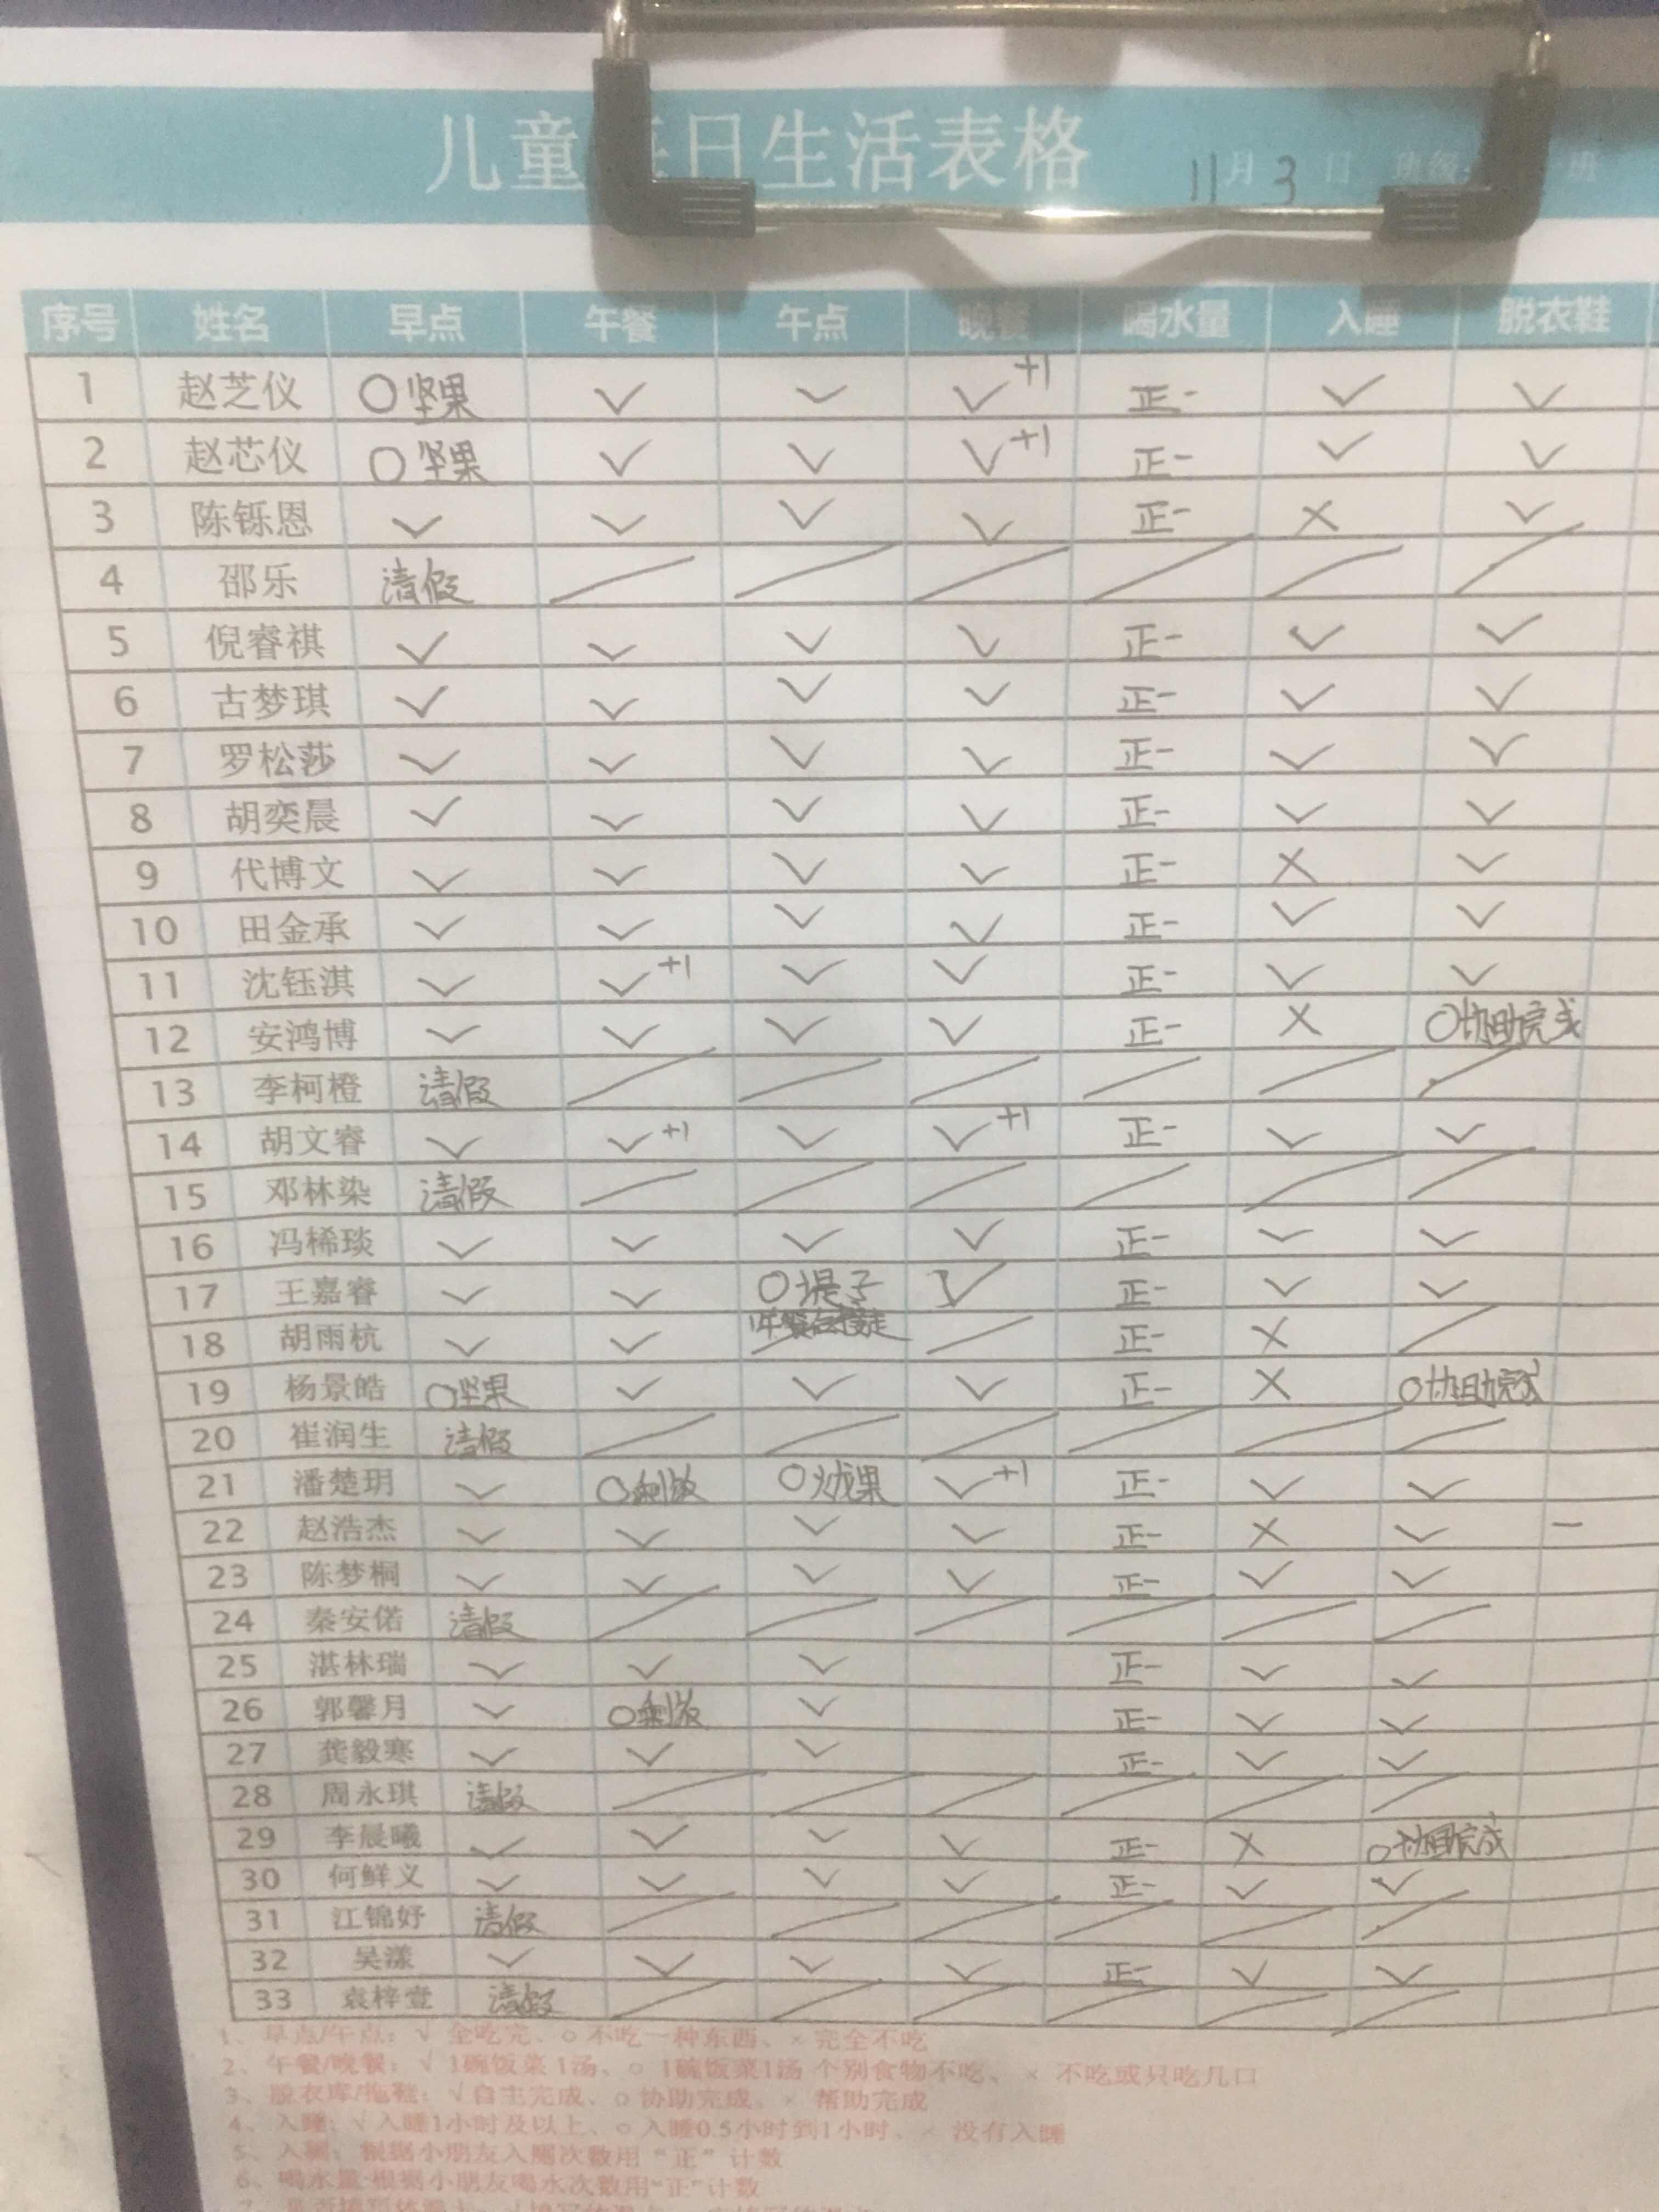 儿童每日生活表格 11月3日 班级: 班
序号 姓名 早点 午餐 午点 晚餐 喝水量 入睡 脱衣鞋
1 赵芝仪 ○坚果 ✓ ✓ ✓+1 正一 ✓ ✓
2 赵芯仪 ○坚果 ✓ ✓ ✓+1 正一 ✓ ✓
3 陈铄恩 ✓ ✓ ✓ ✓ 正一 × ✓
4 邵乐 请假
5 倪睿祺 ✓ ✓ ✓ ✓ 正一 ✓ ✓
6 古梦琪 ✓ ✓ ✓ ✓ 正一 ✓ ✓
7 罗松莎 ✓ ✓ ✓ ✓ 正一 ✓ ✓
8 胡奕晨 ✓ ✓ ✓ ✓ 正一 ✓ ✓
9 代博文 ✓ ✓ ✓ ✓ 正一 × ✓
10 田金承 ✓ ✓ ✓ ✓ 正一 ✓ ✓
11 沈钰淇 ✓ ✓+1 ✓ ✓ 正一 ✓ ✓
12 安鸿博 ✓ ✓ ✓ ✓ 正一 × ○协助完成
13 李柯橙 请假
14 胡文睿 ✓ ✓+1 ✓ ✓+1 正一 ✓ ✓
15 邓林染 请假
16 冯桸琰 ✓ ✓ ✓ ✓ 正一 ✓ ✓
17 王嘉睿 ✓ ✓ ○提子 ✓ 正一 ✓ ✓
18 胡雨杭 ✓ ✓ 接走 正一 ×
19 杨景皓 ○坚果 ✓ ✓ ✓ 正一 × ○协助完成
20 崔润生 请假
21 潘楚玥 ✓ ○剩饭 ○火龙果 ✓+1 正一 ✓ ✓
22 赵浩杰 ✓ ✓ ✓ ✓ 正一 × ✓ 一
23 陈梦桐 ✓ ✓ ✓ ✓ 正一 ✓ ✓
24 秦安偌 请假
25 湛林瑞 ✓ ✓ ✓ 正一 ✓ ✓
26 郭馨月 ✓ ○剩饭 ✓ 正一 ✓ ✓
27 龚毅寒 ✓ ✓ ✓ 正一 ✓ ✓
28 周永琪 请假
29 李晨曦 ✓ ✓ ✓ ✓ 正一 × ○协助完成
30 何鲜义 ✓ ✓ ✓ ✓ 正一 ✓ ✓
31 江锦妤 请假
32 吴漾 ✓ ✓ ✓ ✓ 正一 ✓ ✓
33 袁梓壹 请假
1、早点/午点：√ 全吃完、○ 不吃一种东西、× 完全不吃
2、午餐/晚餐：√ 1碗饭菜1汤、○ 1碗饭菜1汤 个别食物不吃、× 不吃或只吃几口
3、脱衣库/拖鞋：√ 自主完成、○ 协助完成、× 帮助完成
4、入睡：√ 入睡1小时及以上、○ 入睡0.5小时到1小时、× 没有入睡
5、入厕：根据小朋友入厕次数用“正”计数
6、喝水量:根据小朋友喝水次数用“正”计数